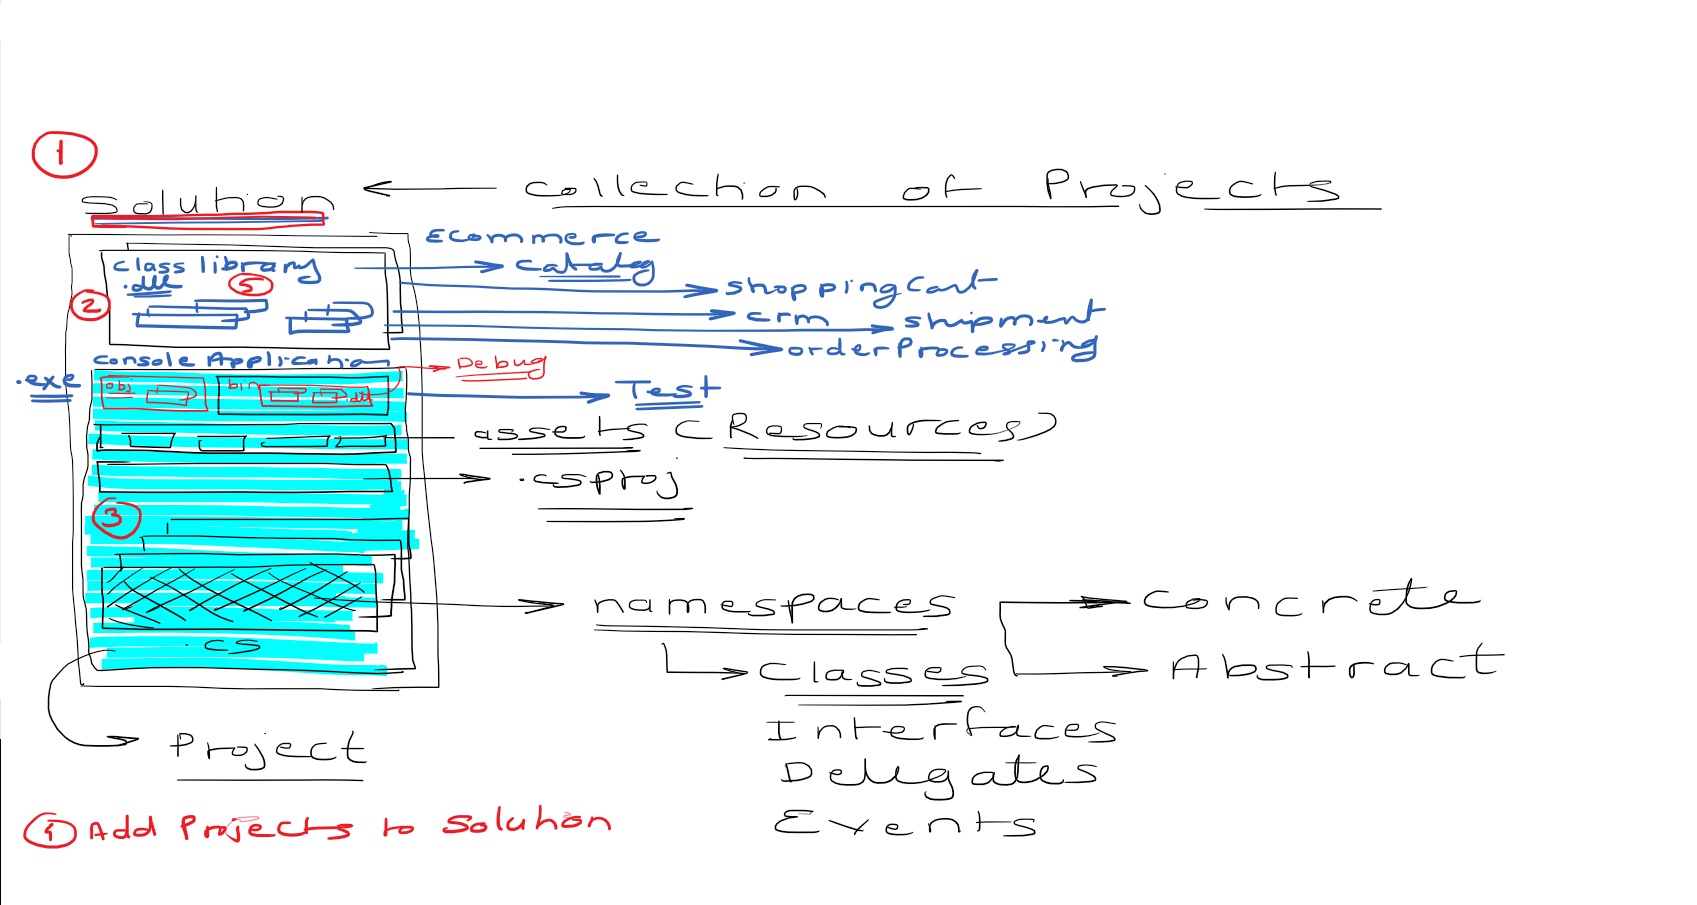 1
Solution ← collection of Projects
Ecommerce
class library → catalog
.dll 5
2
shoppingCart
crm
shipment
orderProcessing
console Application
Debug
.exe
obj
bin
.dll
Test
assets (Resources)
.csproj
3
namespaces
Concrete
.cs
Classes
Abstract
Interfaces
Project
Delegates
Events
4 Add Projects to Solution